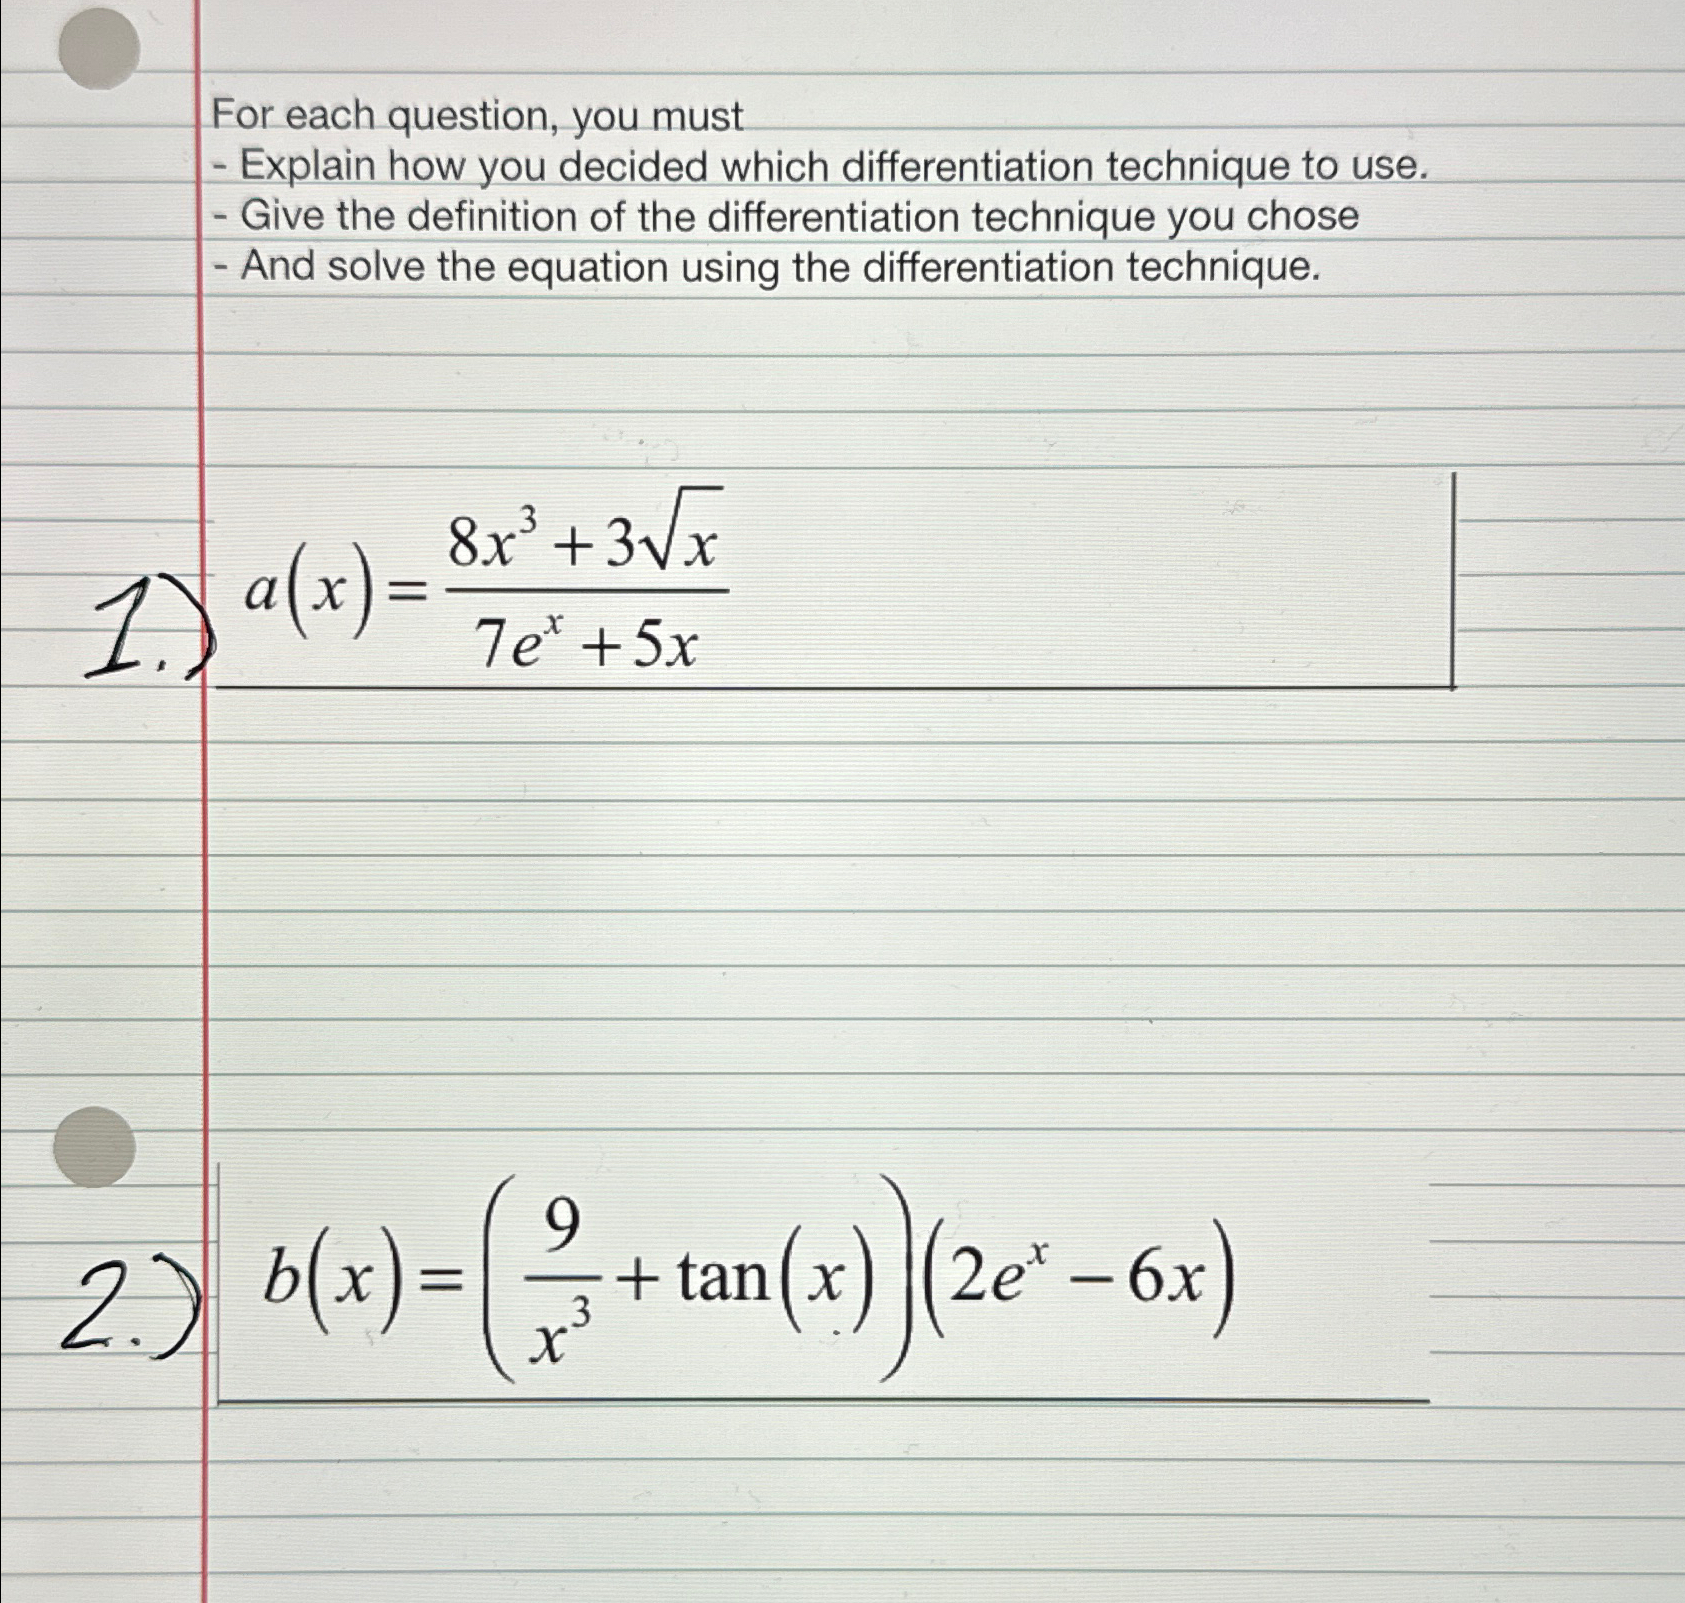 For each question, you must
- Explain how you decided which differentiation technique to use.
- Give the definition of the differentiation technique you chose
- And solve the equation using the differentiation technique.
1.) a(x) = (8x³ + 3√x)/(7eˣ + 5x)
2.) b(x) = (9/x³ + tan(x))(2eˣ − 6x)